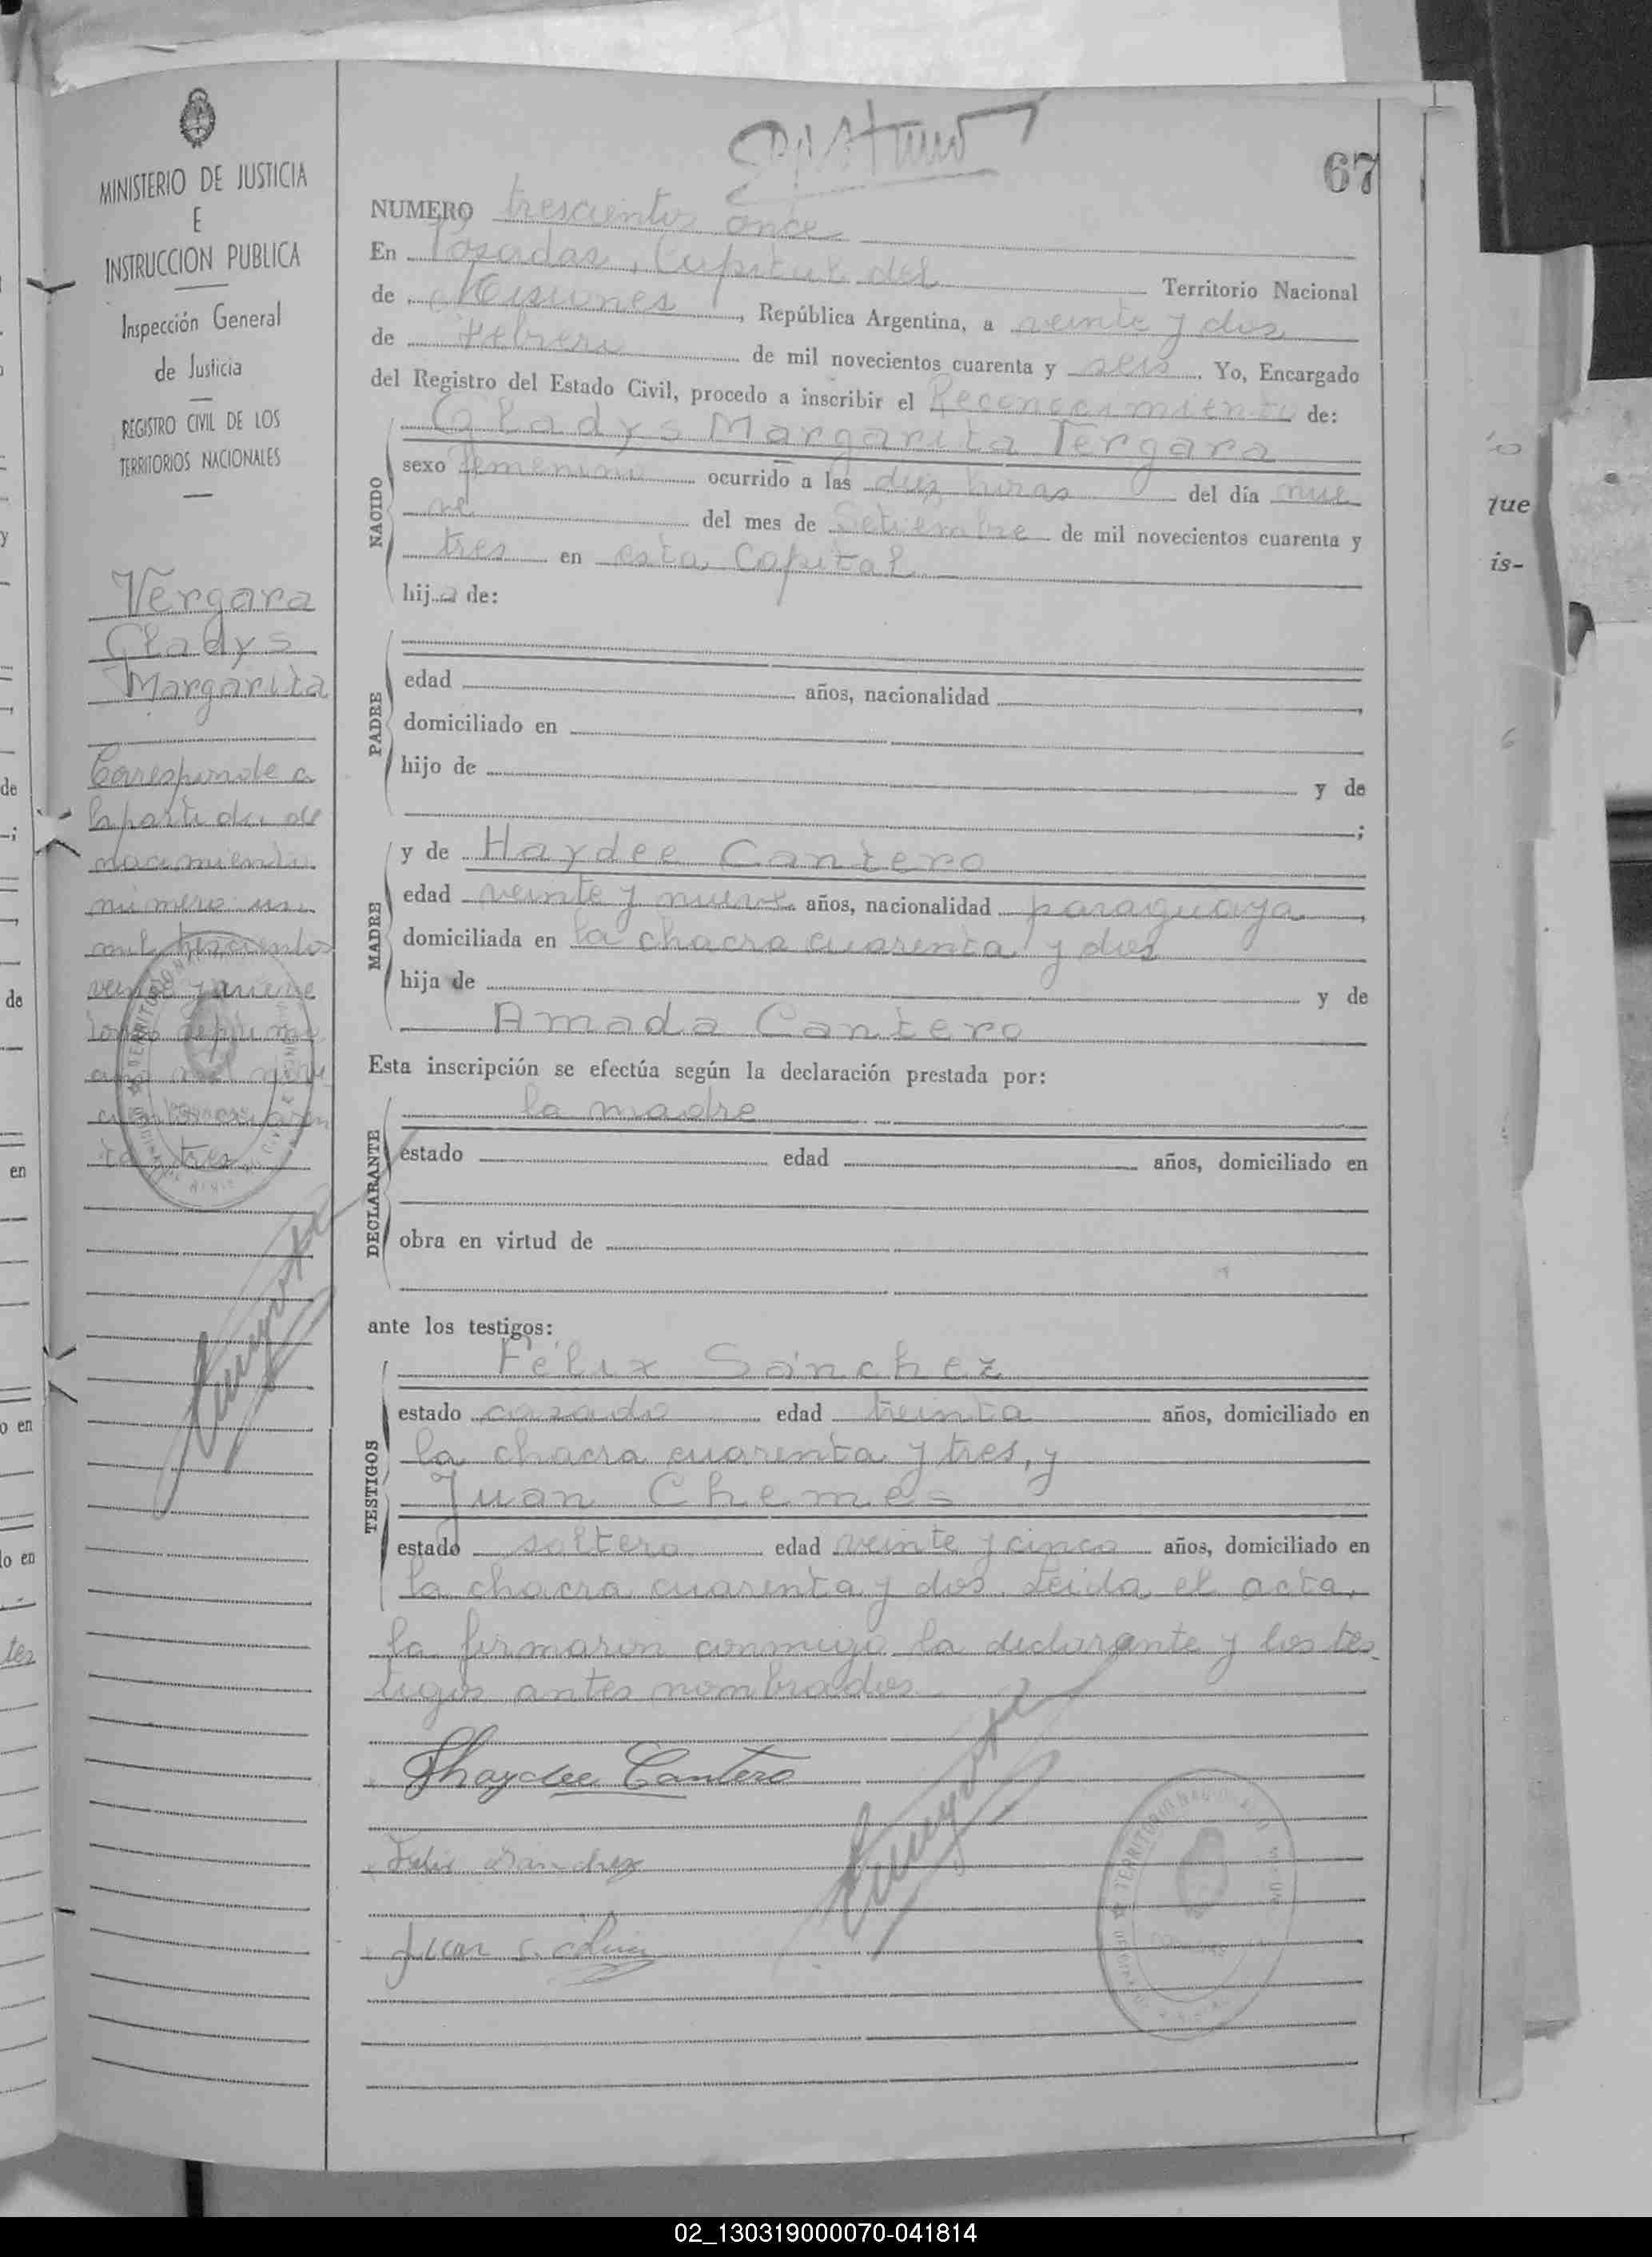 MINISTERIO DE JUSTICIA
E
INSTRUCCION PUBLICA
Inspección General
de Justicia
REGISTRO CIVIL DE LOS
TERRITORIOS NACIONALES
Vergara
Gladys
Margarita
Corresponde a
la partida de
nacimiento
número un
mil trescientos
veinte y nueve
tomo
año mil nove
cientos cuaren
ta y tres
67
NUMERO trescientos once
En Posadas, Capital del Territorio Nacional
de Misiones, República Argentina, a veinte y dos
de Febrero de mil novecientos cuarenta y seis. Yo, Encargado
del Registro del Estado Civil, procedo a inscribir el Reconocimiento de:
NACIDO
Gladys Margarita Vergara
sexo femenino ocurrido a las diez horas del día nue
ve del mes de Setiembre de mil novecientos cuarenta y
tres en esta Capital
hija de:
PADRE
edad años, nacionalidad ,
domiciliado en
hijo de y de
;
MADRE
y de Haydee Cantero
edad veinte y nueve años, nacionalidad paraguaya,
domiciliada en la chacra cuarenta y dos
hija de y de
Amada Cantero
Esta inscripción se efectúa según la declaración prestada por:
DECLARANTE
la madre
estado edad años, domiciliado en
obra en virtud de
ante los testigos:
TESTIGOS
Félix Sánchez
estado casado edad treinta años, domiciliado en
la chacra cuarenta y tres, y
Juan Chemes
estado soltero edad veinte y cinco años, domiciliado en
la chacra cuarenta y dos. Leida el acta,
la firmaron conmigo la declarante y los tes
tigos antes nombrados
Haydee Cantero
Felix Sanchez
Juan
que
is-
de
de
en
o en
lo en
tes
02_130319000070-041814